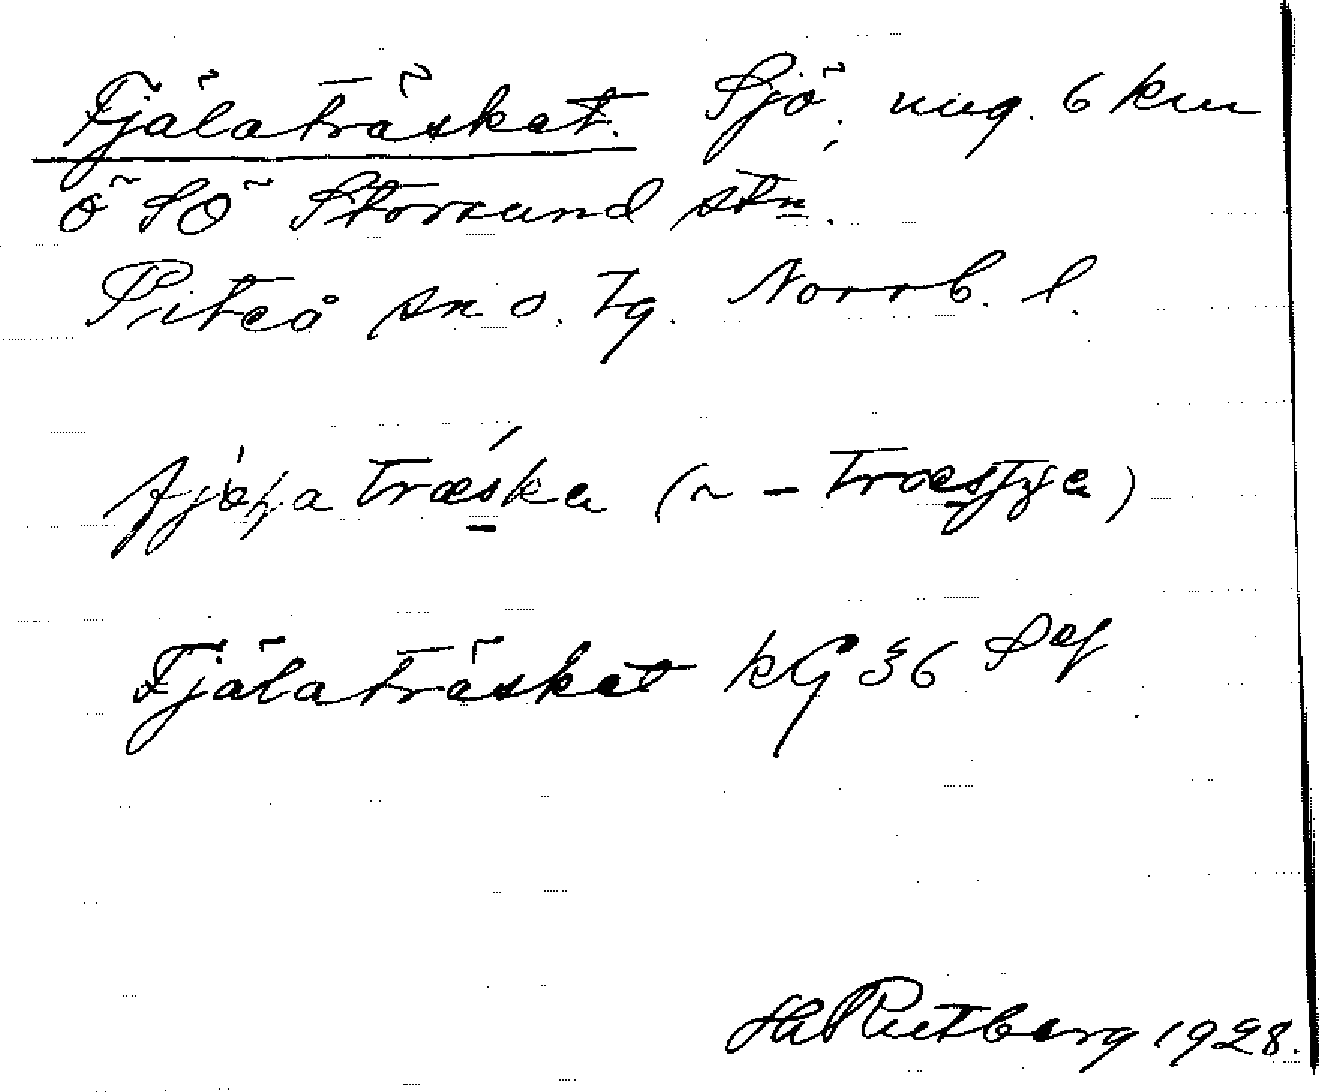 Fjälaträsket. Sjö, ung. 6 km
ö SÖ Storsund stn.
Piteå sn o. tg. Norrb. l.
fjäḷa træ´ska (~ - træstje)
Fjälaträsket kG 36
Rutberg 1928.